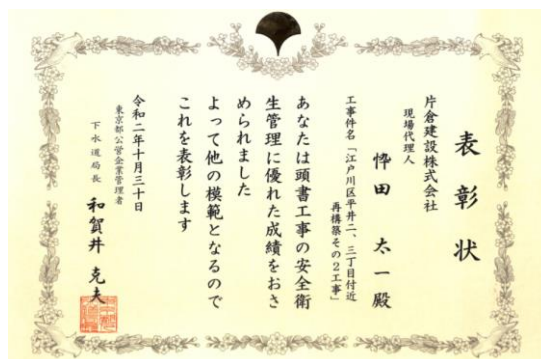 表彰状
片倉建設株式会社
現場代理人
田 太一殿
工事件名「江戸川区平井二、三丁目付近
再構築その2工事」
あなたは頭書工事の安全衛
生管理に優れた成績をおさ
められました
よって他の模範となるので
これを表彰します
令和二年十月三十日
東京都公営企業管理者
下水道局長 和賀井克夫